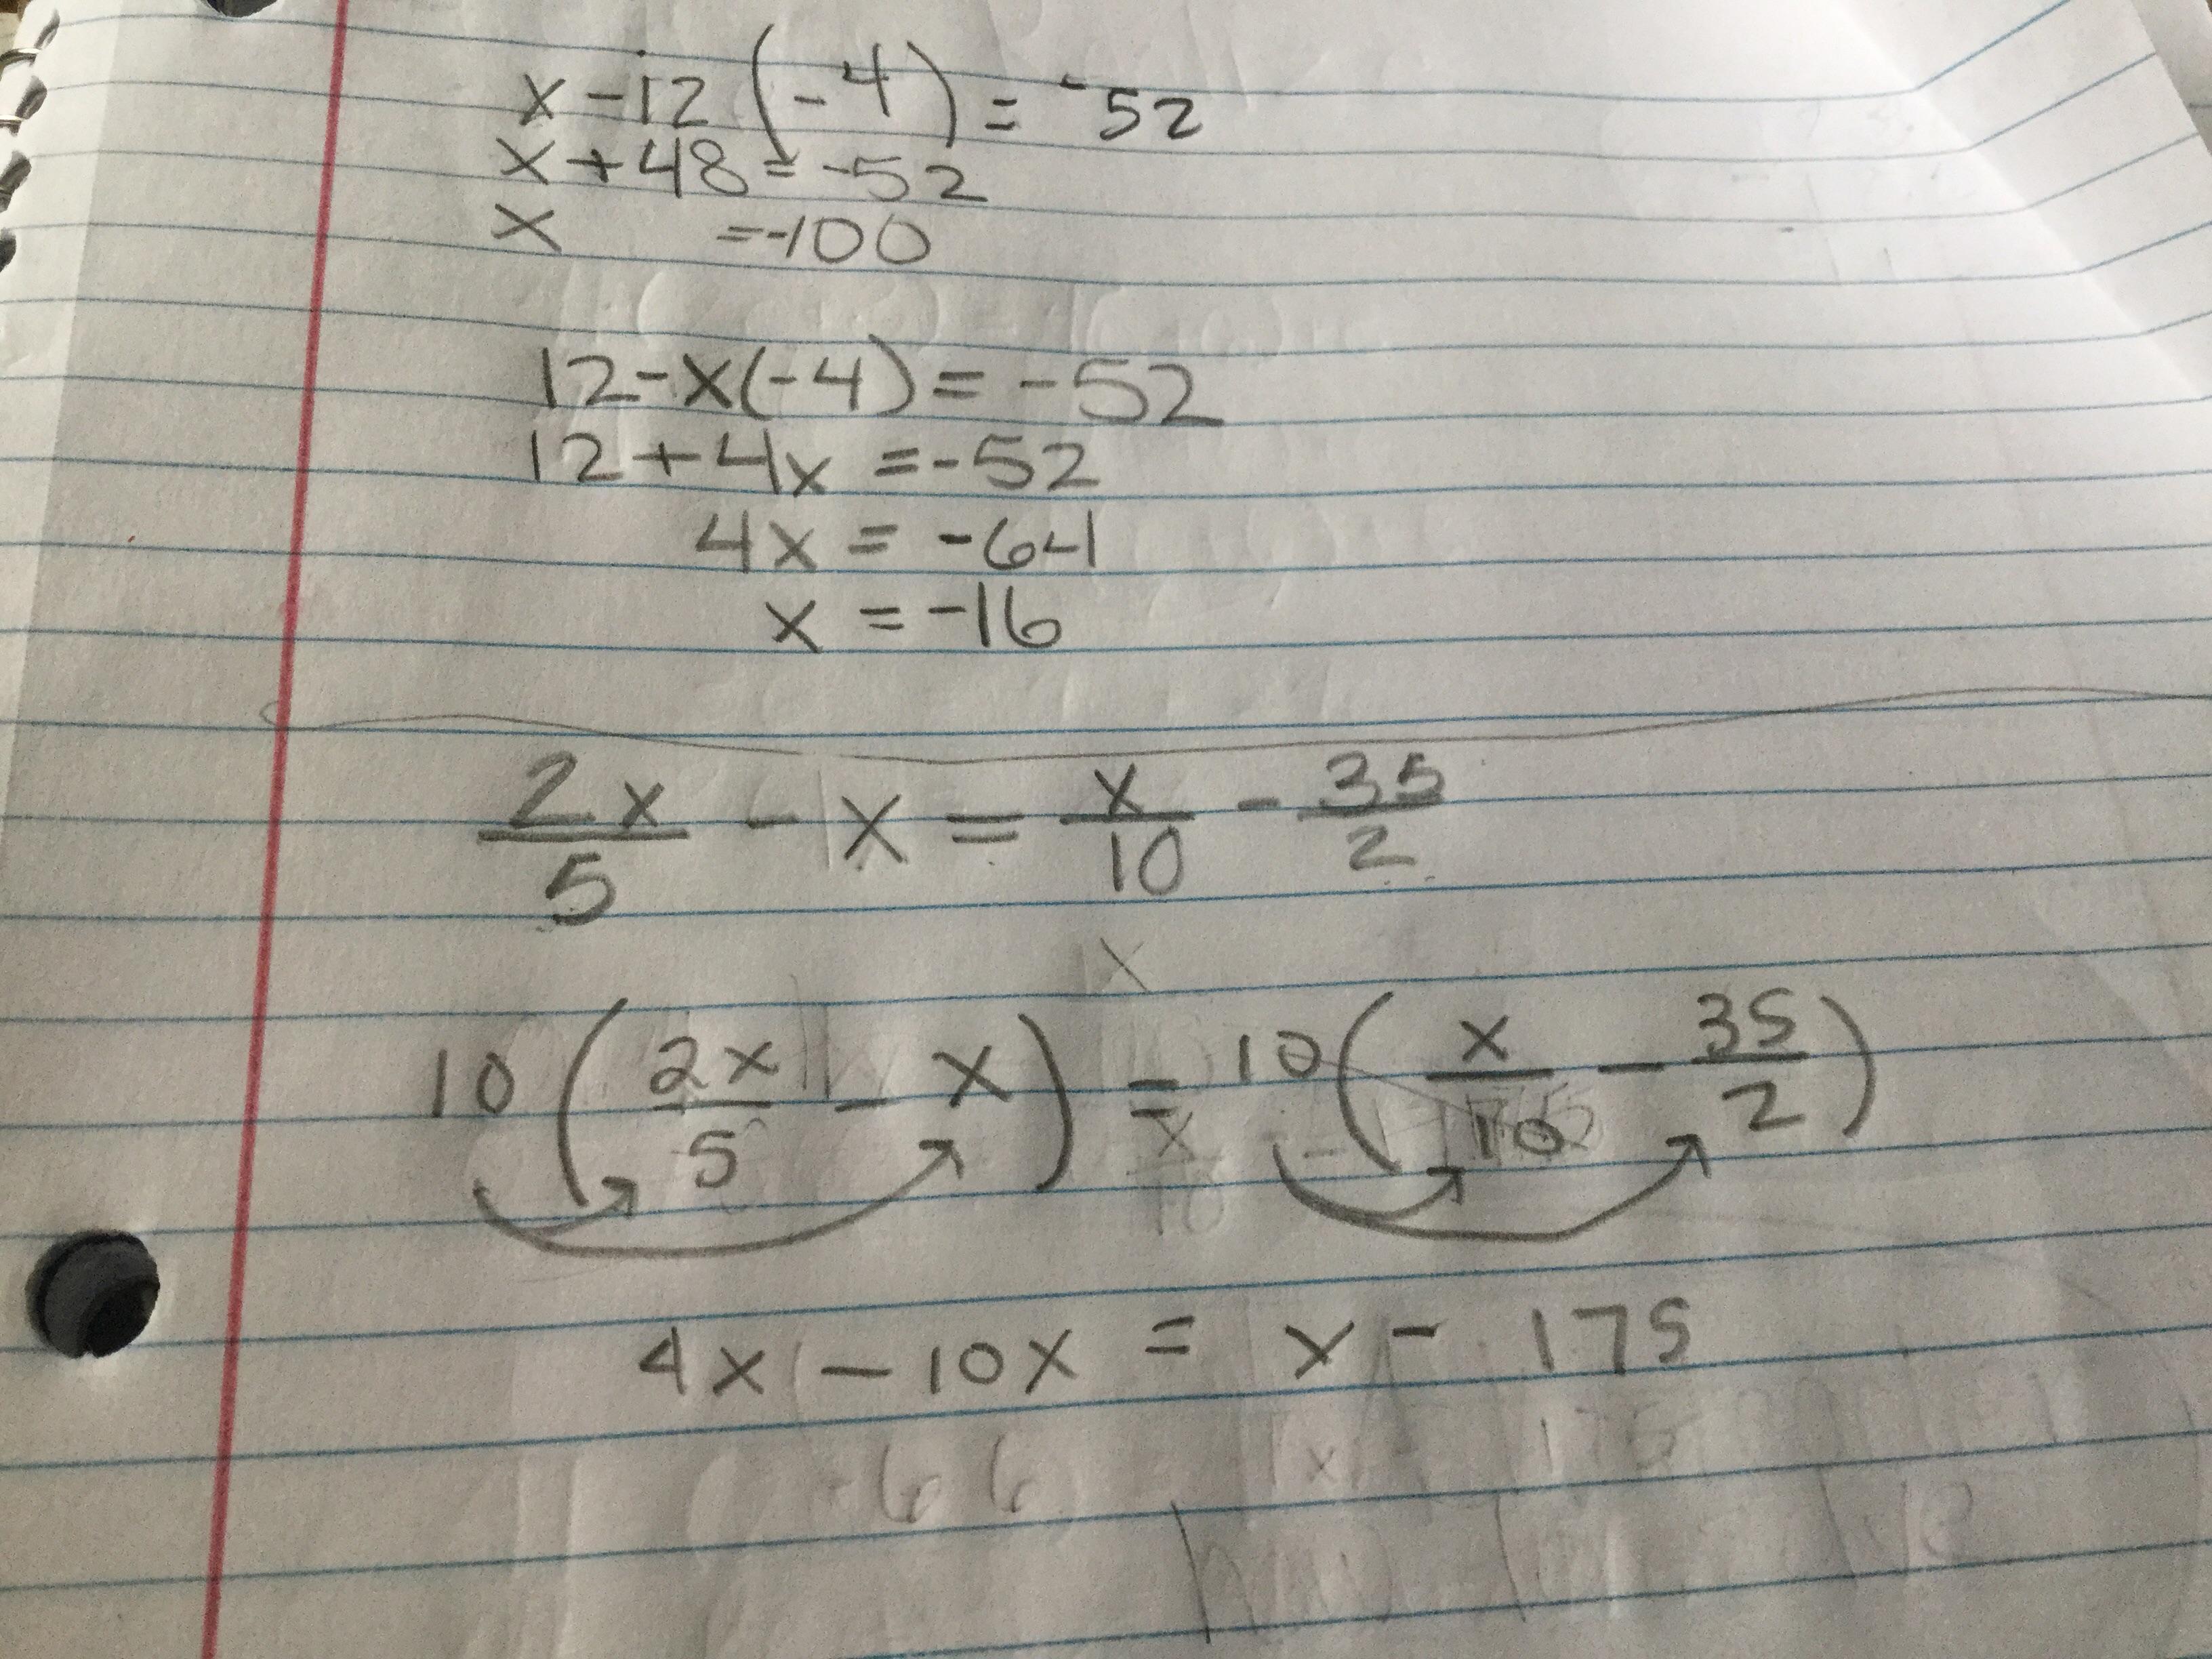 x - 12 (-4) = -52
x + 48 = -52
x = -100
12 - x(-4) = -52
12 + 4x = -52
4x = -64
x = -16
2x/5 - x = x/10 - 35/2
x
10 (2x/5 - x) = 10 (x/10 - 35/2)
4x - 10x = x - 175